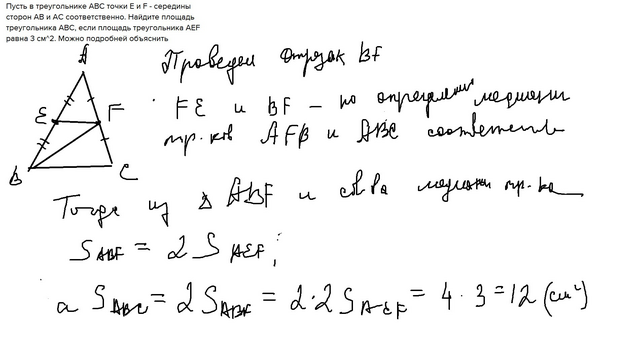 Пусть в треугольнике ABC точки E и F - середины
сторон AB и AC соответственно. Найдите площадь
треугольника ABC, если площадь треугольника AEF
равна 3 см^2. Можно подробней объяснить
A
Проведем отрезок BF
E F
FE и BF – по определению медианы
тр-ков AFB и ABC соответственно
B C
Тогда из △ ABF и св-ва медианы тр-ка
S ABF = 2 S AEF;
а S ABC = 2 S ABF = 2·2 S AEF = 4·3 = 12 (см²)